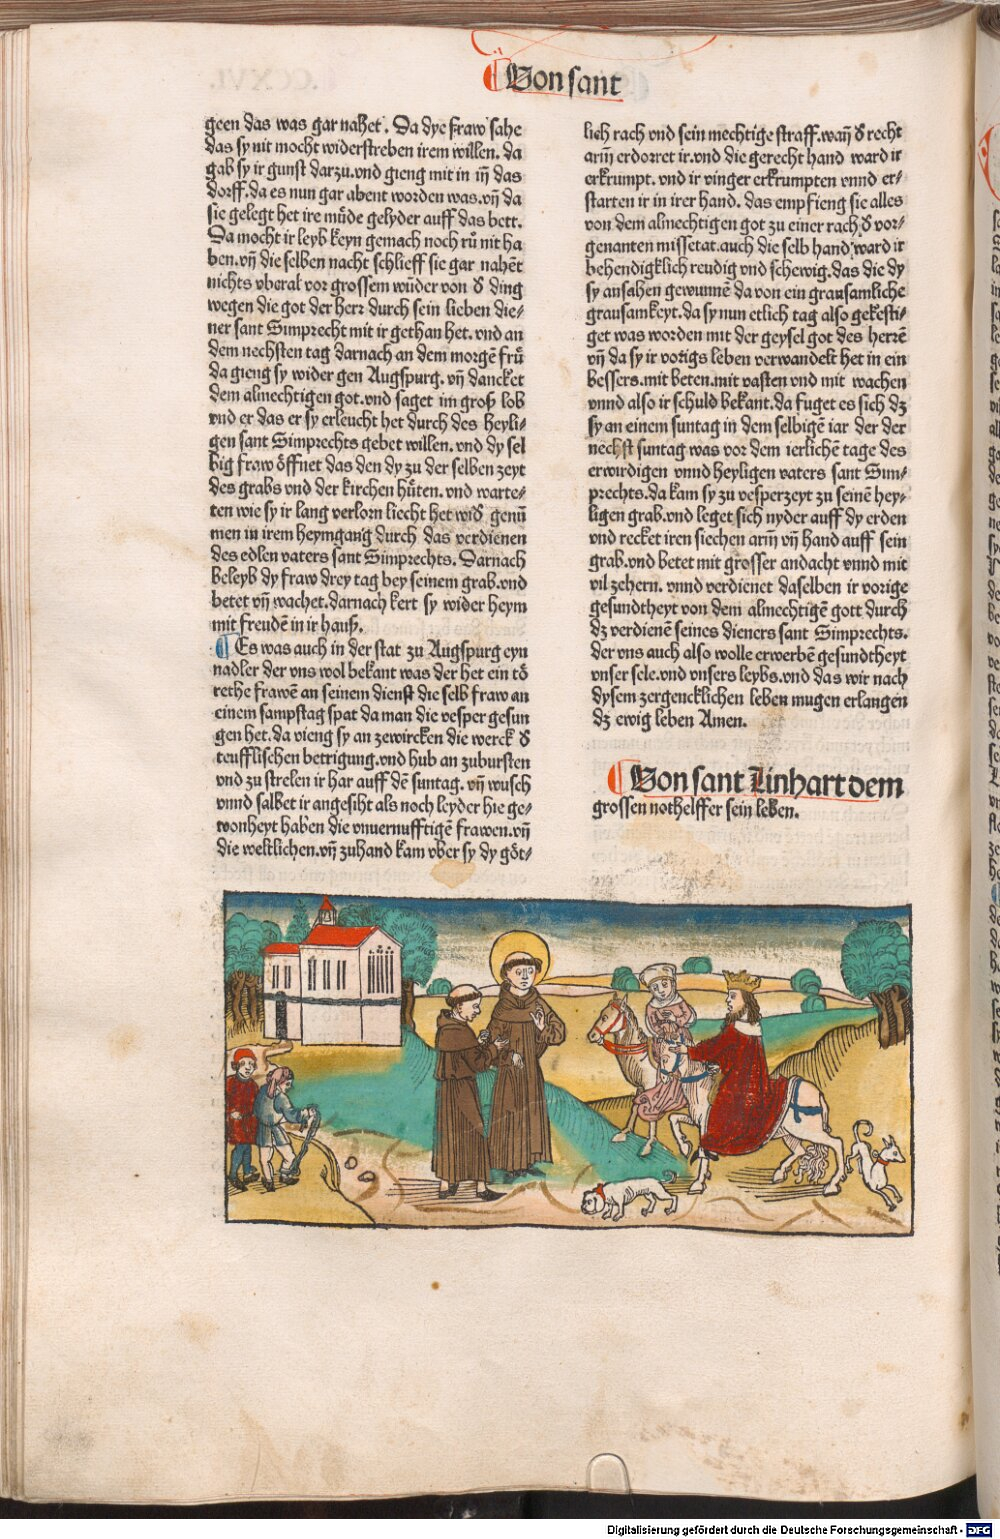 Von sant
geen das was gar nahet. Da dye fraw sahe
das sy nit mocht widerstreben irem willen. da
gab sy ir gunst darzu. vnd gieng mit in iñ das
dorff. da es nun gar abent worden was. vñ da
sie gelegt het ire muͤde gelyder auff das bett.
Da mocht ir leyb keyn gemach noch ruͦ nit ha
ben. vñ die selben nacht schlieff sie gar nahēt
nichts vberal vor grossem wūder von d ding
wegen die got der herr durch sein lieben die⸗
ner sant Simprecht mit ir gethan het. vnd an
dem nechsten tag darnach an dem morgē fruͤ
da gieng sy wider gen Augspurg. vñ dancket
dem almechtigen got. vnd saget im groß lob
vnd er das er sy erleucht het durch des heyli⸗
gen sant Simprechts gebet willen. vnd dy sel
big fraw oͤffnet das den dy zu der selben zeyt
des grabs vnd der kirchen huͤten. vnd warte⸗
ten wie sy ir lang verlorn liecht het wid genū
men in irem heymgang durch das verdienen
des edlen vaters sant Simprechts. Darnach
beleyb dy fraw drey tag bey seinem grab. vnd
betet vñ wachet. darnach kert sy wider heym
mit freudē in ir hauß.
Es was auch in der stat zu Augspurg eyn
nadler der vns wol bekant was der het ein toͤ
rethe frawē an seinem dienst die selb fraw an
einem sampstag spat da man die vesper gesun
gen het. da vieng sy an zewircken die werck d
teufflischen betrigung. vnd hub an zubursten
vnd zu strelen ir har auff dē suntag. vñ wusch
vnnd salbet ir angesiht als noch leyder hie ge⸗
wonheyt haben die vnuernufftigē frawen. vñ
die weltlichen. vñ zuhand kam vber sy dy goͤt⸗
lich rach vnd sein mechtige straff. wañ d recht
arm erdorret ir. vnd die gerecht hand ward ir
erkrumpt. vnd ir vinger erkrumpten vnnd er⸗
starten ir in irer hand. das empfieng sie alles
von dem almechtigen got zu einer rach d vor⸗
genanten missetat. auch die selb hand ward ir
behendigklich reudig vnd schewig. das die dy
sy ansahen gewunnē da von ein grausamliche
grausamkeyt. da sy nun etlich tag also gekesti⸗
get was worden mit der geysel got des herrē
vñ da sy ir vorigs leben verwandelt het in ein
bessers. mit beten. mit vasten vnd mit wachen
vnnd also ir schuld bekant. da fuget es sich dz
sy an einem suntag in dem selbigē iar der der
nechst suntag was vor dem ierlichē tage des
erwirdigen vnnd heyligen vaters sant Sim⸗
prechts. da kam sy zu vesperzeyt zu seinē hey⸗
ligen grab. vnd leget sich nyder auff dy erden
vnd recket iren siechen arm vñ hand auff sein
grab. vnd betet mit grosser andacht vnnd mit
vil zehern. vnnd verdienet daselben ir vorige
gesundtheyt von dem almechtigē gott durch
dz verdienē seines dieners sant Simprechts.
der vns auch also wolle erwerbē gesundtheyt
vnser sele. vnd vnsers leybs. vnd das wir nach
dysem zergencklichen leben mugen erlangen
dz ewig leben Amen.
Von sant Linhart dem
grossen nothelffer sein leben.
Digitalisierung gefördert durch die Deutsche Forschungsgemeinschaft - DFG